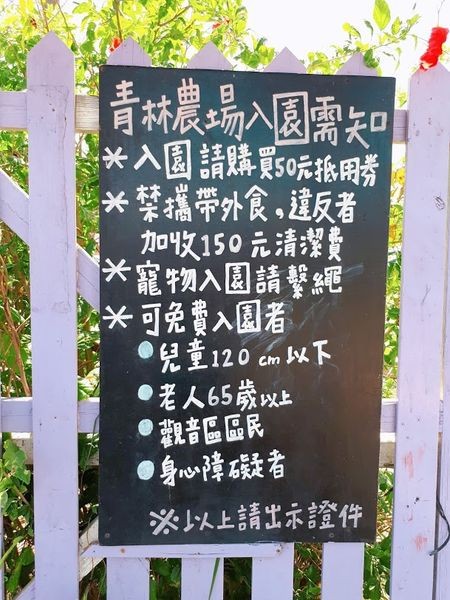 青林農場入園需知
* 入園請購買50元抵用券
* 禁攜帶外食,違反者
加收150元清潔費
* 寵物入園請繫繩
* 可免費入園者
● 兒童120cm以下
● 老人65歲以上
● 觀音區區民
● 身心障礙者
※以上請出示證件